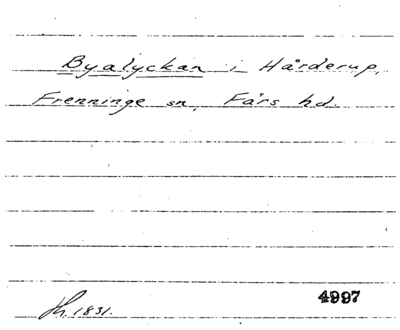 Byalyckan i Hårderup,
Frenninge sn, Färs hd.
1831. 4997